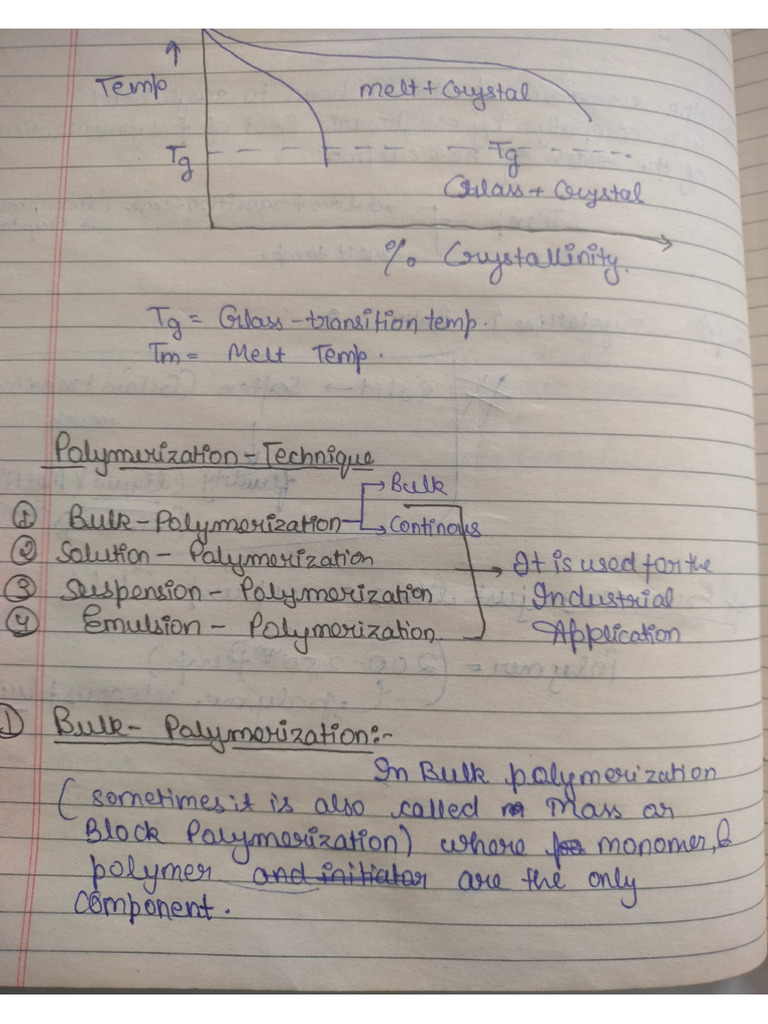 Temp
melt + Crystal
Tg
Tg
Glass + Crystal
% Crystallinity.
Tg = Glass - transition temp.
Tm = Melt Temp.
Polymerization - Technique
① Bulk - Polymerization
Bulk
Continous
② Solution - Polymerization
③ Suspension - Polymerization
④ Emulsion - Polymerization.
It is used for the
Industrial
Application
① Bulk - Polymerization:-
In Bulk polymerization
( sometimes it is also called Mass or
Block Polymerization) where monomer, &
polymer and initiator are the only
component.